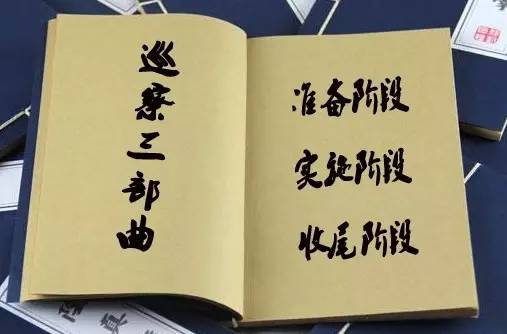 巡察三部曲
准备阶段
实施阶段
收尾阶段